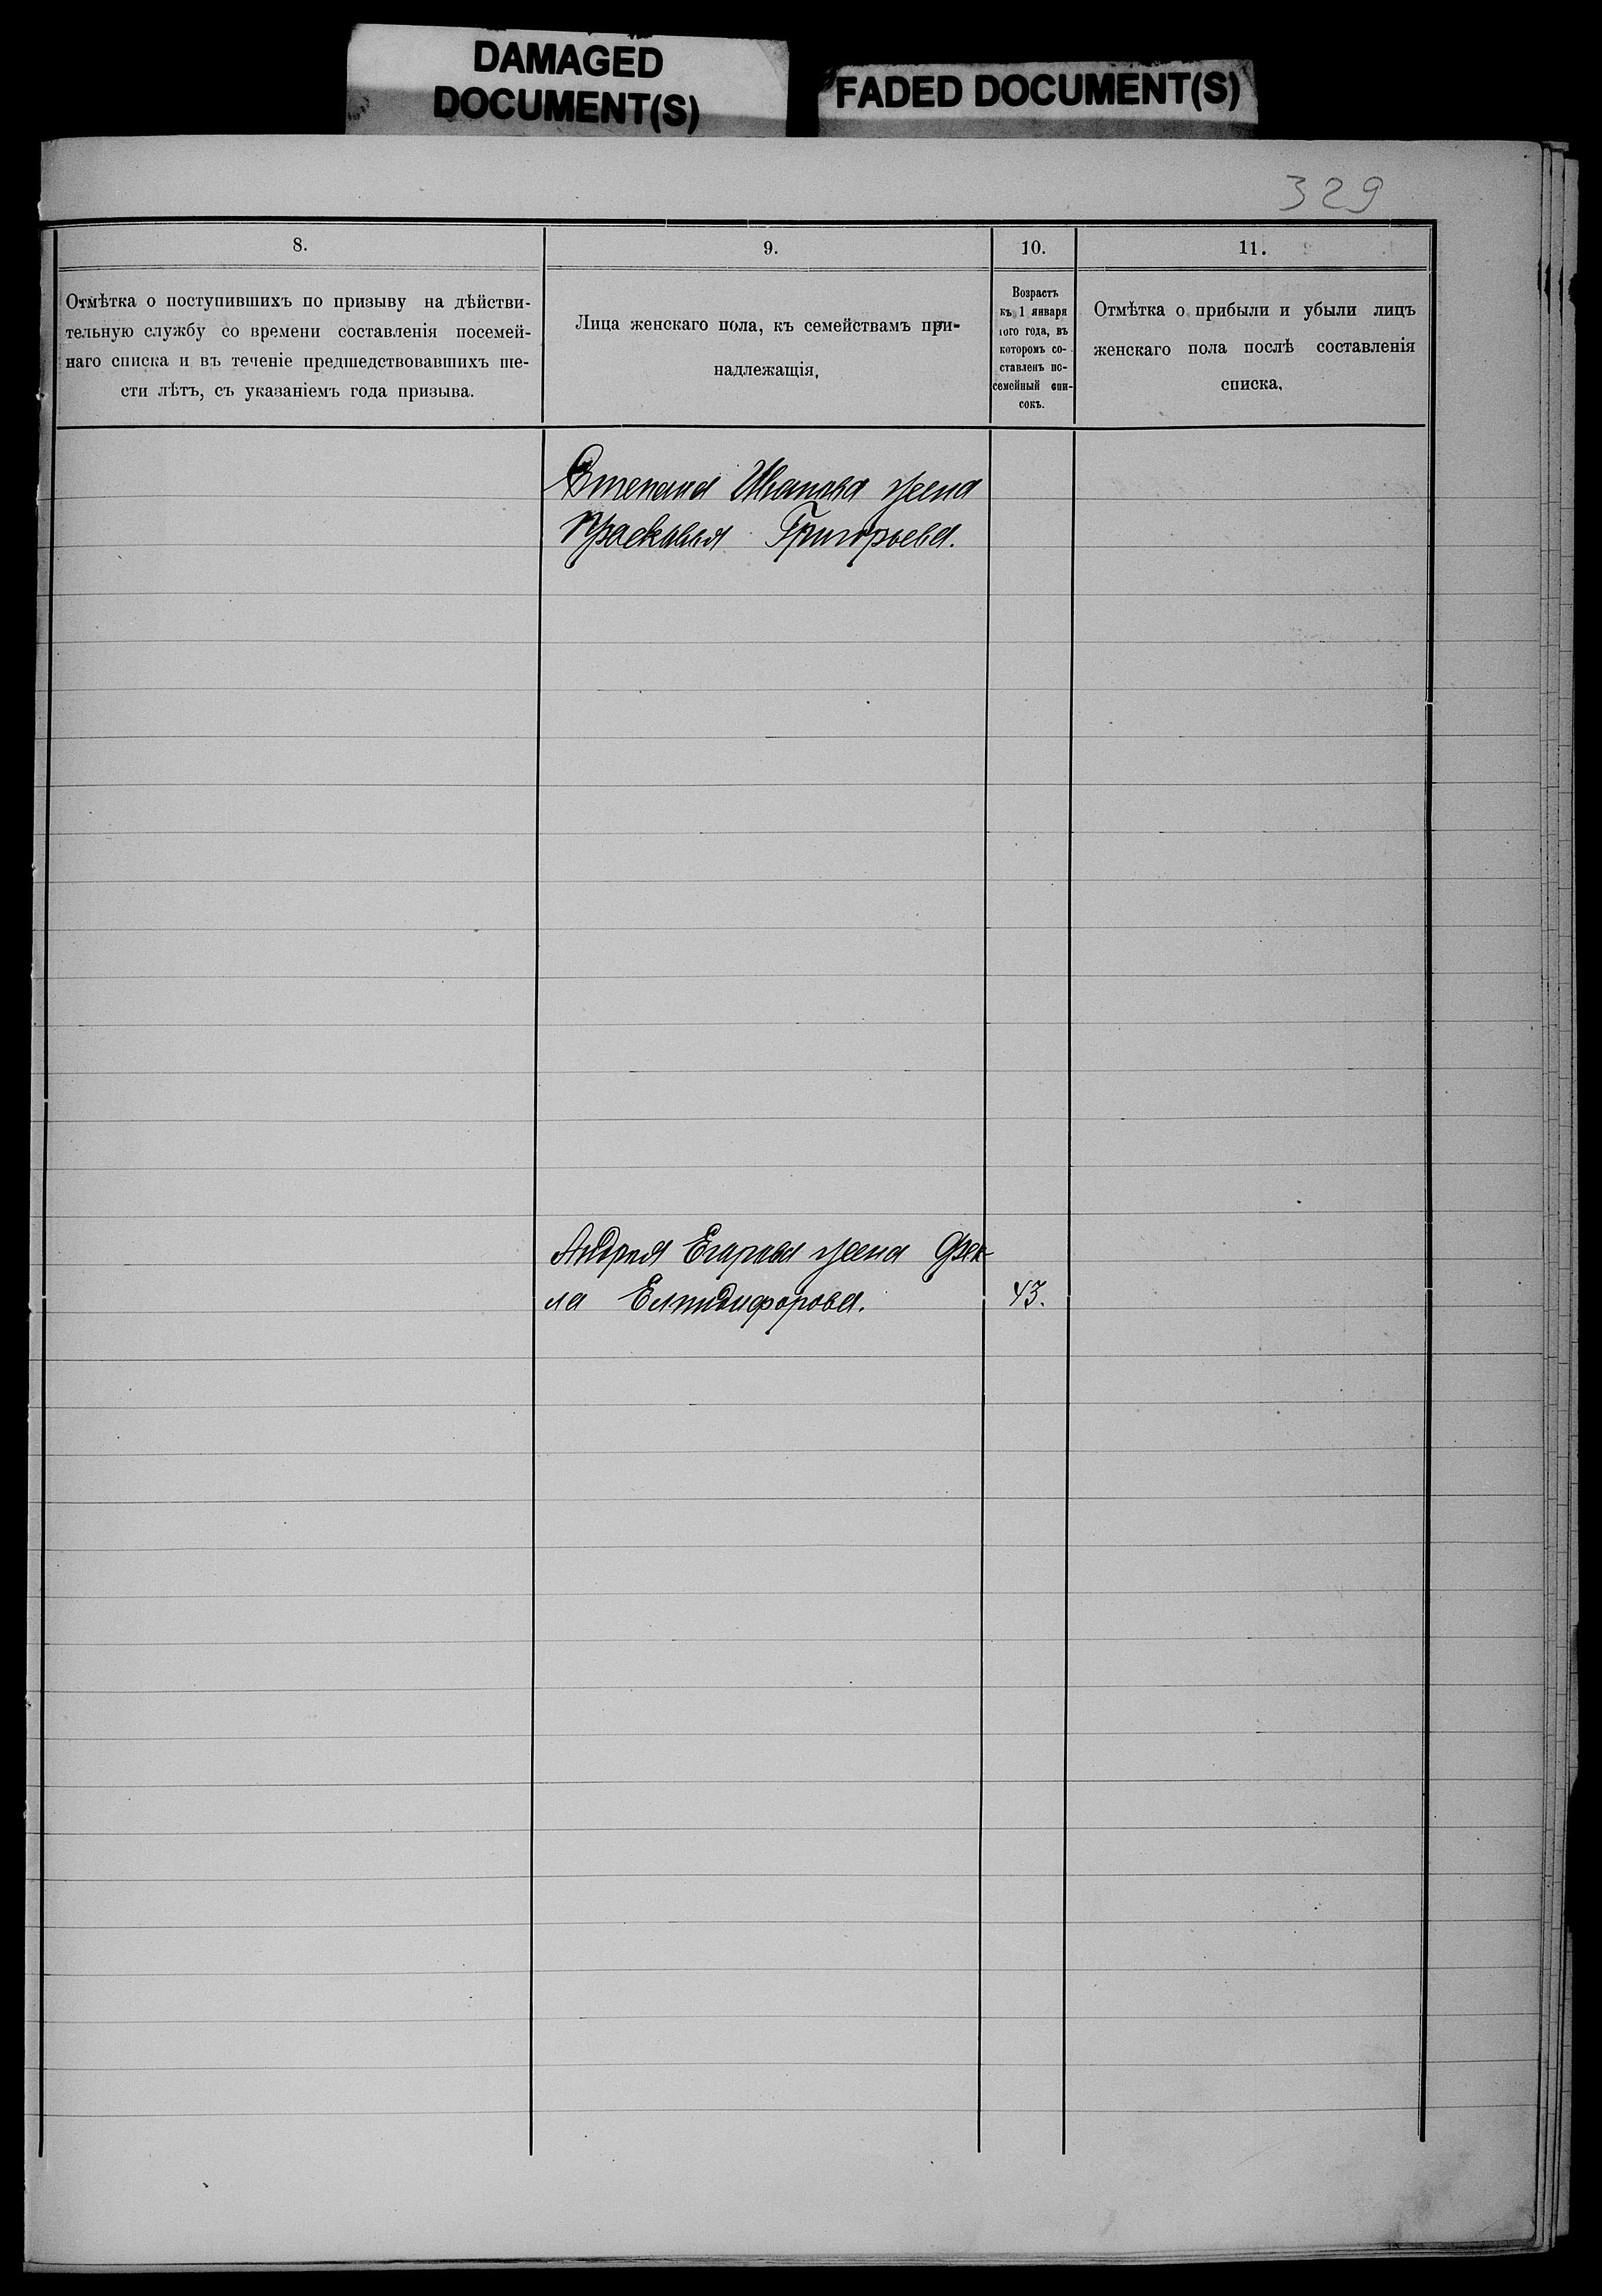 DAMAGED
DOCUMENT(S)
FADED DOCUMENT(S)
329
8.
9.
10.
11.
Отмѣтка о поступившихъ по призыву на дѣйстви-
тельную службу со времени составленія посемей-
наго списка и въ теченіе предшедствовавшихъ ше-
сти лѣтъ, съ указаніемъ года призыва.
Лица женскаго пола, къ семействамъ при-
надлежащія,
Возрастъ
къ 1 января
того года, въ
которомъ со-
ставленъ по-
семейный спи-
сокъ.
Отмѣтка о прибыли и убыли лицъ
женскаго пола послѣ составленія
списка.
Степана Иванова жена
Праскавья Григорьева.
Андрея Егарова жена Фек
ла Елпидифорова. 43.